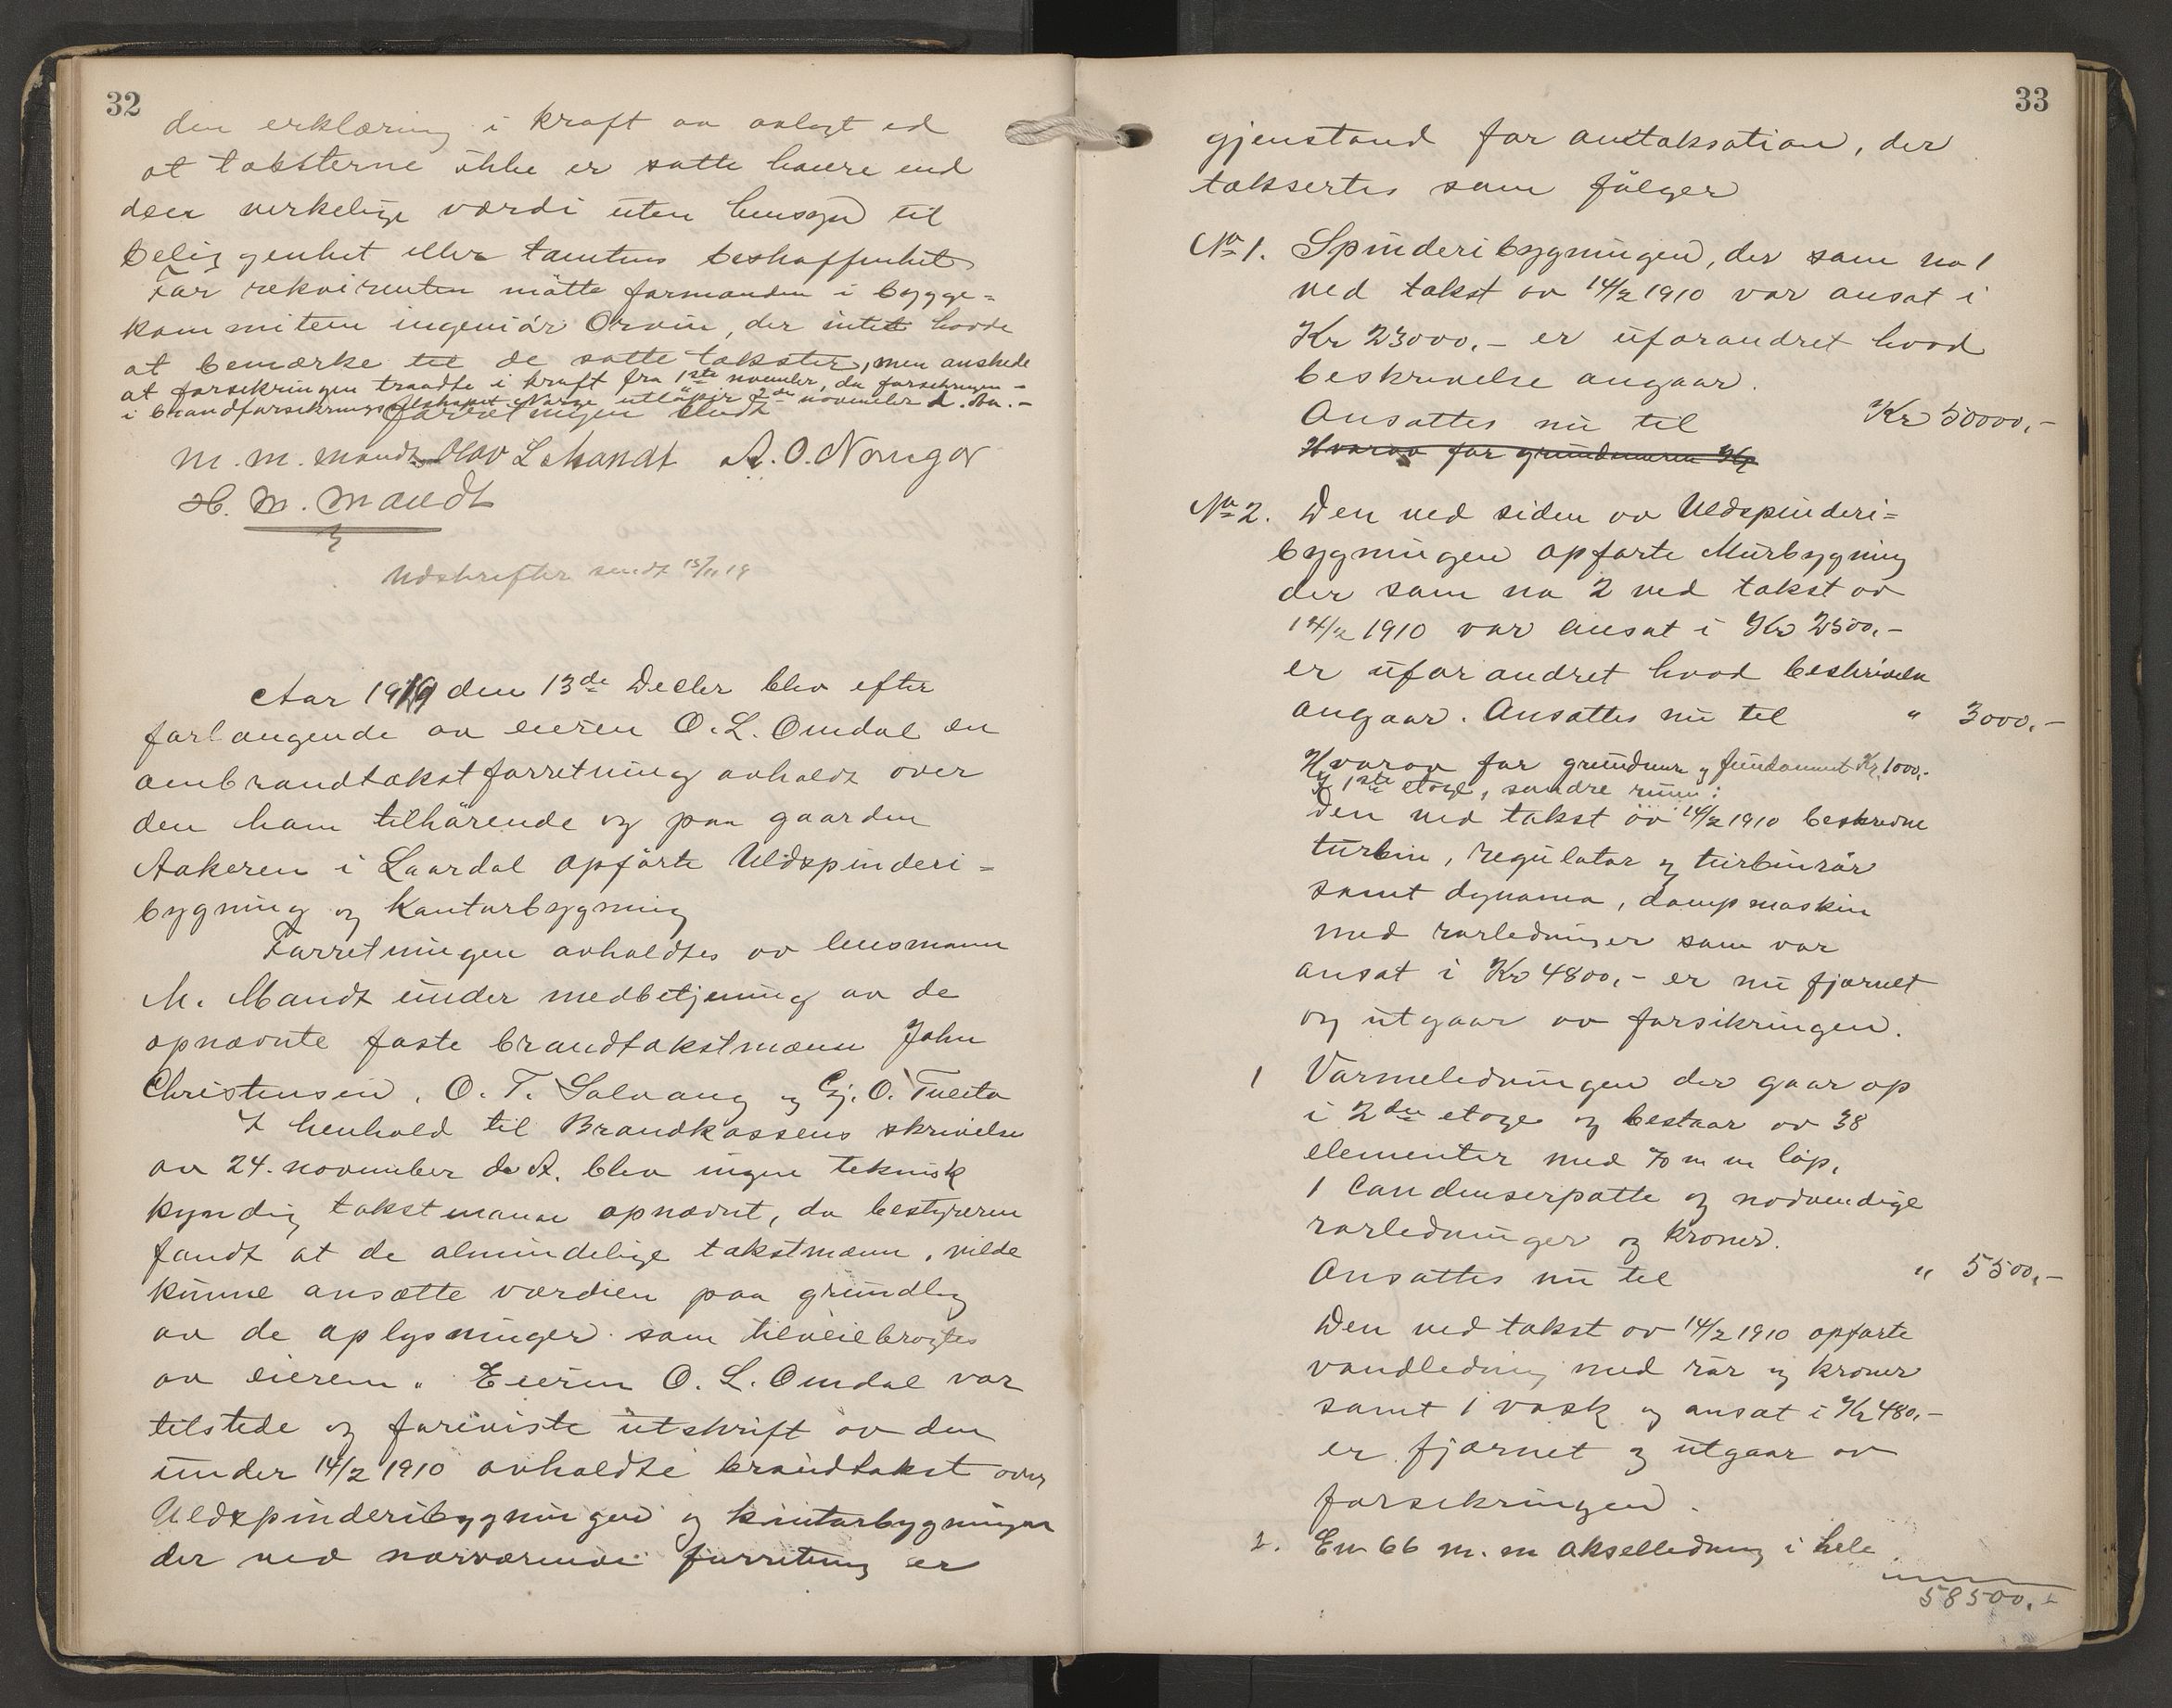 32
den erklæring i kraft av avlagt ed
at taksterne ikke er satte høiere end
den virkelige værdi uten hensyn til
beliggenhet eller tomtens beskaffenhet
For rekvirenten møtte formanden i bygge-
kommiteen ingeniør Orvin, der intet havde
at bemærke til de satte takster, men ønskede
at forsikringen traadte i kraft fra 1ste november, da forsikringen
i brandforsikringsselskapet Norge utløper 2den november d. Aa.
Forretningen sludt
M. M. Mandt Olav L Mandt A. O. Norigar
H. M. Mandt
Udskrifter sendt 15/11 19
Aar 1919 den 13de Decbr blev efter
forlangende av eieren O. L. Omdal en
ombrandtakstforretning avholdt over
den ham tilhørende og paa gaarden
Aakeren i Laardal opførte Uldspinderi-
bygning og Kontorbygning
Forretningen avholdtes av lensmann
M. Mandt under medbetjening av de
opnævnte faste brandtakstmænn John
Christensen, O. T. Solvang og Gj. O. Tveito
I henhold til Brandkassens skrivelse
av 24. november d. A. blev ingen teknisk
kyndig takstmann opnævnt, da bestyreren
fandt at de almindelige takstmænn, vilde
kunne ansætte værdien paa grundlag
av de oplysninger som tilveiebragtes
av eieren. Eieren O. L. Omdal var
tilstede og foreviste utskrift av den
under 14/2 1910 avholdte brandtakst over
Uldspinderibygningen og kontorbygningen
der ved nærværende forretning er
33
gjenstand for omtaksation, der
taksertes som følger
No 1. Spinderibygningen, der som no 1
ved takst av 14/2 1910 var ansat i
Kr 23000,- er uforandret hvad
beskrivelse angaar.
Ansattes nu til Kr 50000,-
Hvorav for grundmuren Kr
No 2. Den ved siden av Uldspinderi-
bygningen opførte Murbygning
der som no 2 ved takst av
14/2 1910 var ansat i Kr 2500,-
er uforandret hvad beskrivelse
angaar. Ansattes nu til " 3000,-
Hvorav for grundmur og fundament Kr. 1000,-
I 1ste etage, søndre rum:
Den ved takst av 14/2 1910 beskrevne
turbin, regulator og turbinrør
samt dynamo, dampmaskin
med rørledninger som var
ansat i Kr 4800,- er nu fjærnet
og utgaar av forsikringen.
1 Varmeledningen der gaar op
i 2den etage og bestaar av 38
elementer med 70 m m løp,
1 Condenserpotte og nødvendige
rørledninger og kroner.
Ansattes nu til " 5500,-
Den ved takst av 14/2 1910 opførte
vandledning med rør og kroner
samt 1 vask og ansat i Kr 480,-
er fjærnet og utgaar av
forsikringen.
2. En 66 m. m akselledning i hele
58500,-